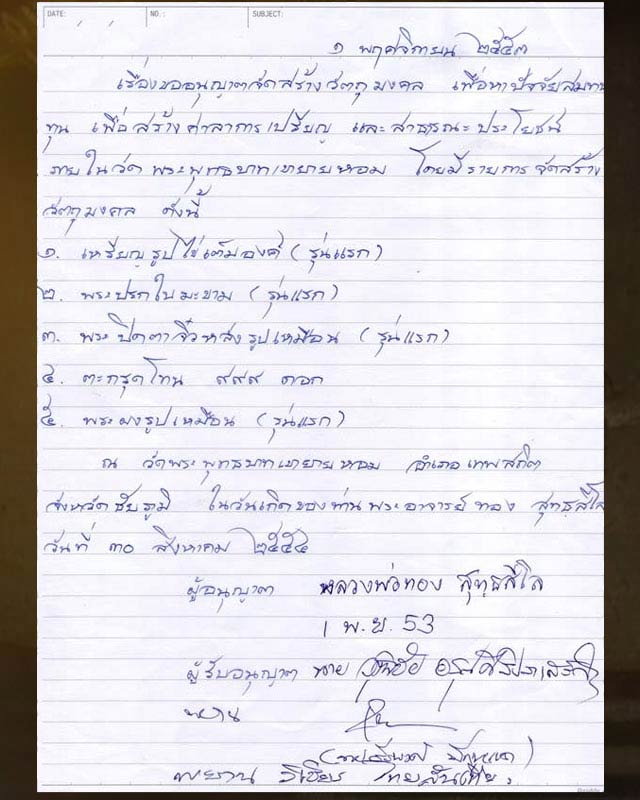 DATE: / / NO.: SUBJECT:
๑ พฤศจิกายน ๒๕๕๓
เรื่องขออนุญาตจัดสร้างวัตถุมงคล เพื่อหาปัจจัยสมทบ
ทุน เพื่อสร้างศาลาการเปรียญ และสาธารณะประโยชน์
ภายในวัดพระพุทธบาทเขายายหอม โดยมีรายการจัดสร้าง
วัตถุมงคล ดังนี้
๑. เหรียญรูปไข่เต็มองค์ (รุ่นแรก)
๒. พระปรกใบมะขาม (รุ่นแรก)
๓. พระปิดตาจิ๋วหลังรูปเหมือน (รุ่นแรก)
๔. ตะกรุดโทน ๙๙๙ ดอก
๕. พระผงรูปเหมือน (รุ่นแรก)
ณ วัดพระพุทธบาทเขายายหอม อำเภอเทพสถิต
จังหวัดชัยภูมิ ในวันเกิดของท่านพระอาจารย์ทอง สุทธสีโล
วันที่ ๓๐ สิงหาคม ๒๕๕๔
ผู้อนุญาต หลวงพ่อทอง สุทธสีโล
1 พ.ย. 53
ผู้รับอนุญาต นาย
พยาน
พยาน วิเชียร